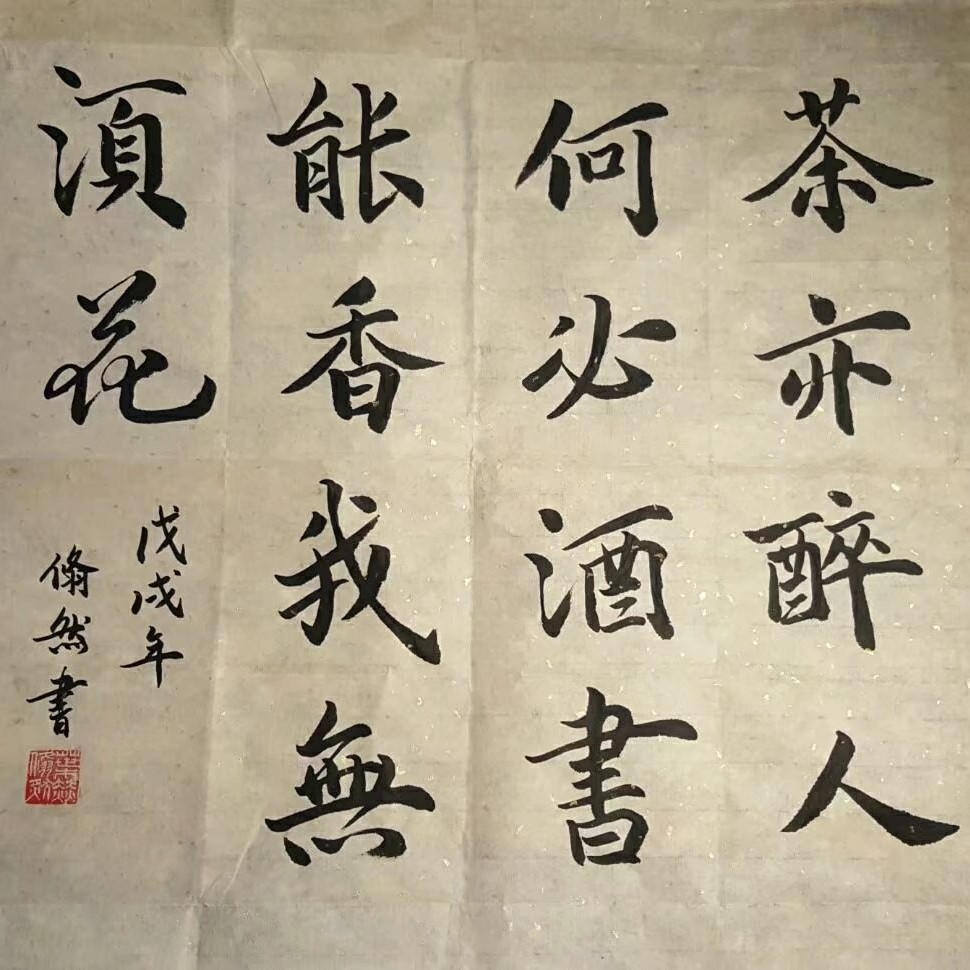 茶亦醉人
何必酒書
能香我無
須花
戊戌年
翛然書